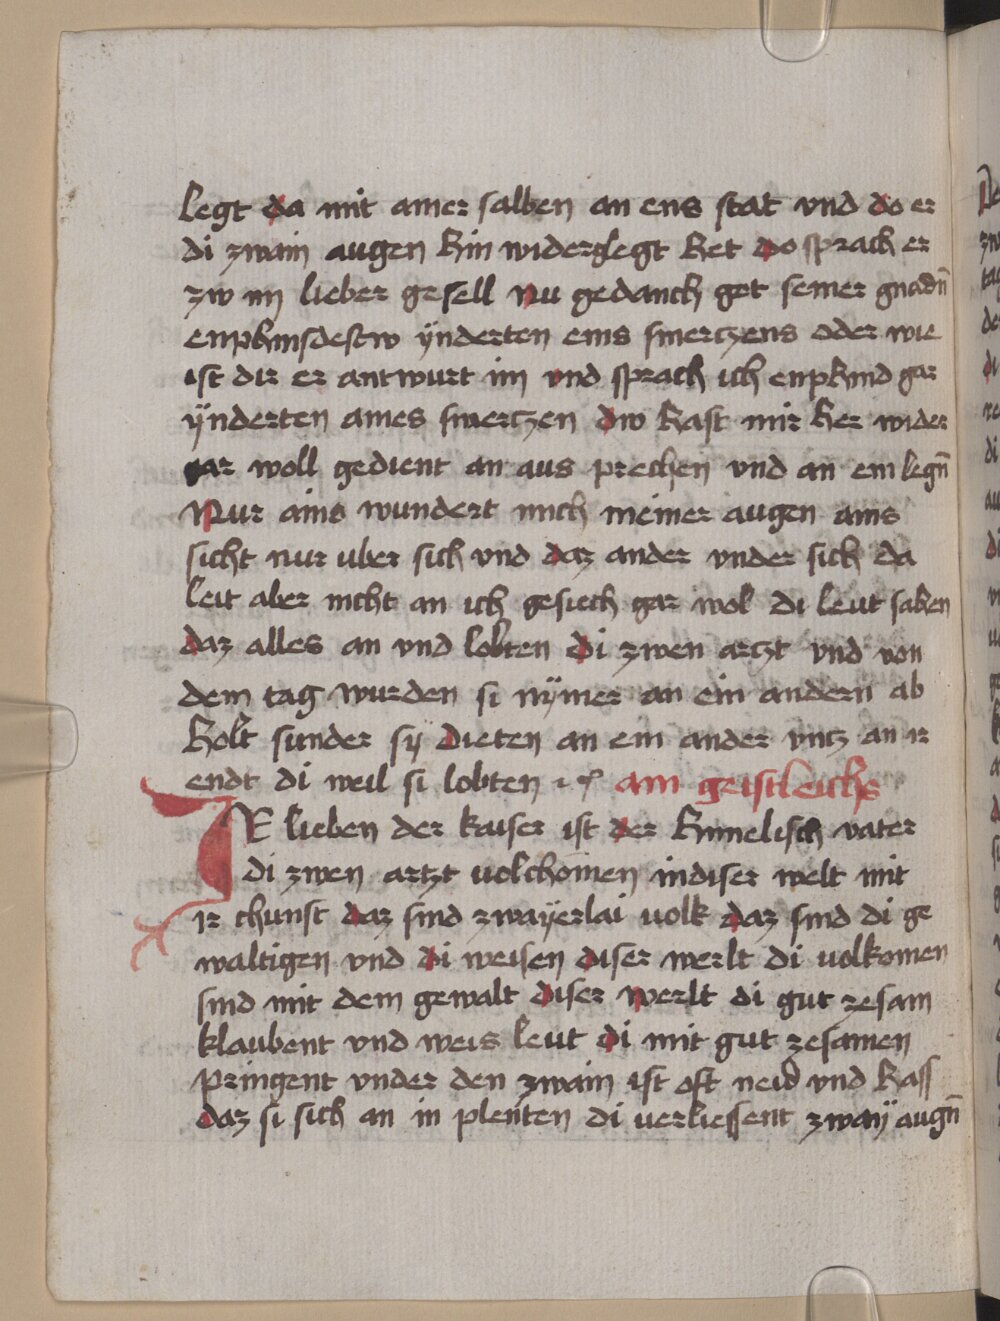 legt da mit ainer salben an ens stat vnd do er
di zwain augen hin widerglegt het do sprach er
zw im lieber gesell nu gedanch got seiner gnadn̄
enphinsdestw ÿnderten eins smerczens oder wie
ist dir er antwurt im vnd sprach ich enphind gar
ÿnderten aines smerczen dw hast mir her wider
gar woll gedient an aus prechen vnd an ein legn̄
Nur ains wundert mich meiner augen ains
sicht nur vber sich vnd daz ander vnder sich da
leit aber nicht an ich gesiech gar wol di leut sahen
daz alles an vnd lobten di zwen arczt vnd von
dem tag wurden si nÿmer an ein andern ab
holt sunder sÿ dieten an ein ander vntz an ir
endt di weil si lobten ain geistleichs
IR lieben der kaiser ist der himelisch vater
di zwen artzt volchomen in diser welt mit
ir chunst daz sind zwaÿerlai volk daz sind di ge
waltigen vnd di weisen diser werlt di volkomen
sind mit dem gewalt diser werlt di gut zesam
klaubent vnd weis leut di mit gut zesamen
pringent vnder den zwain ist oft neid vnd hass
daz si sich an in plenten di verliessent zwaÿ augn̄